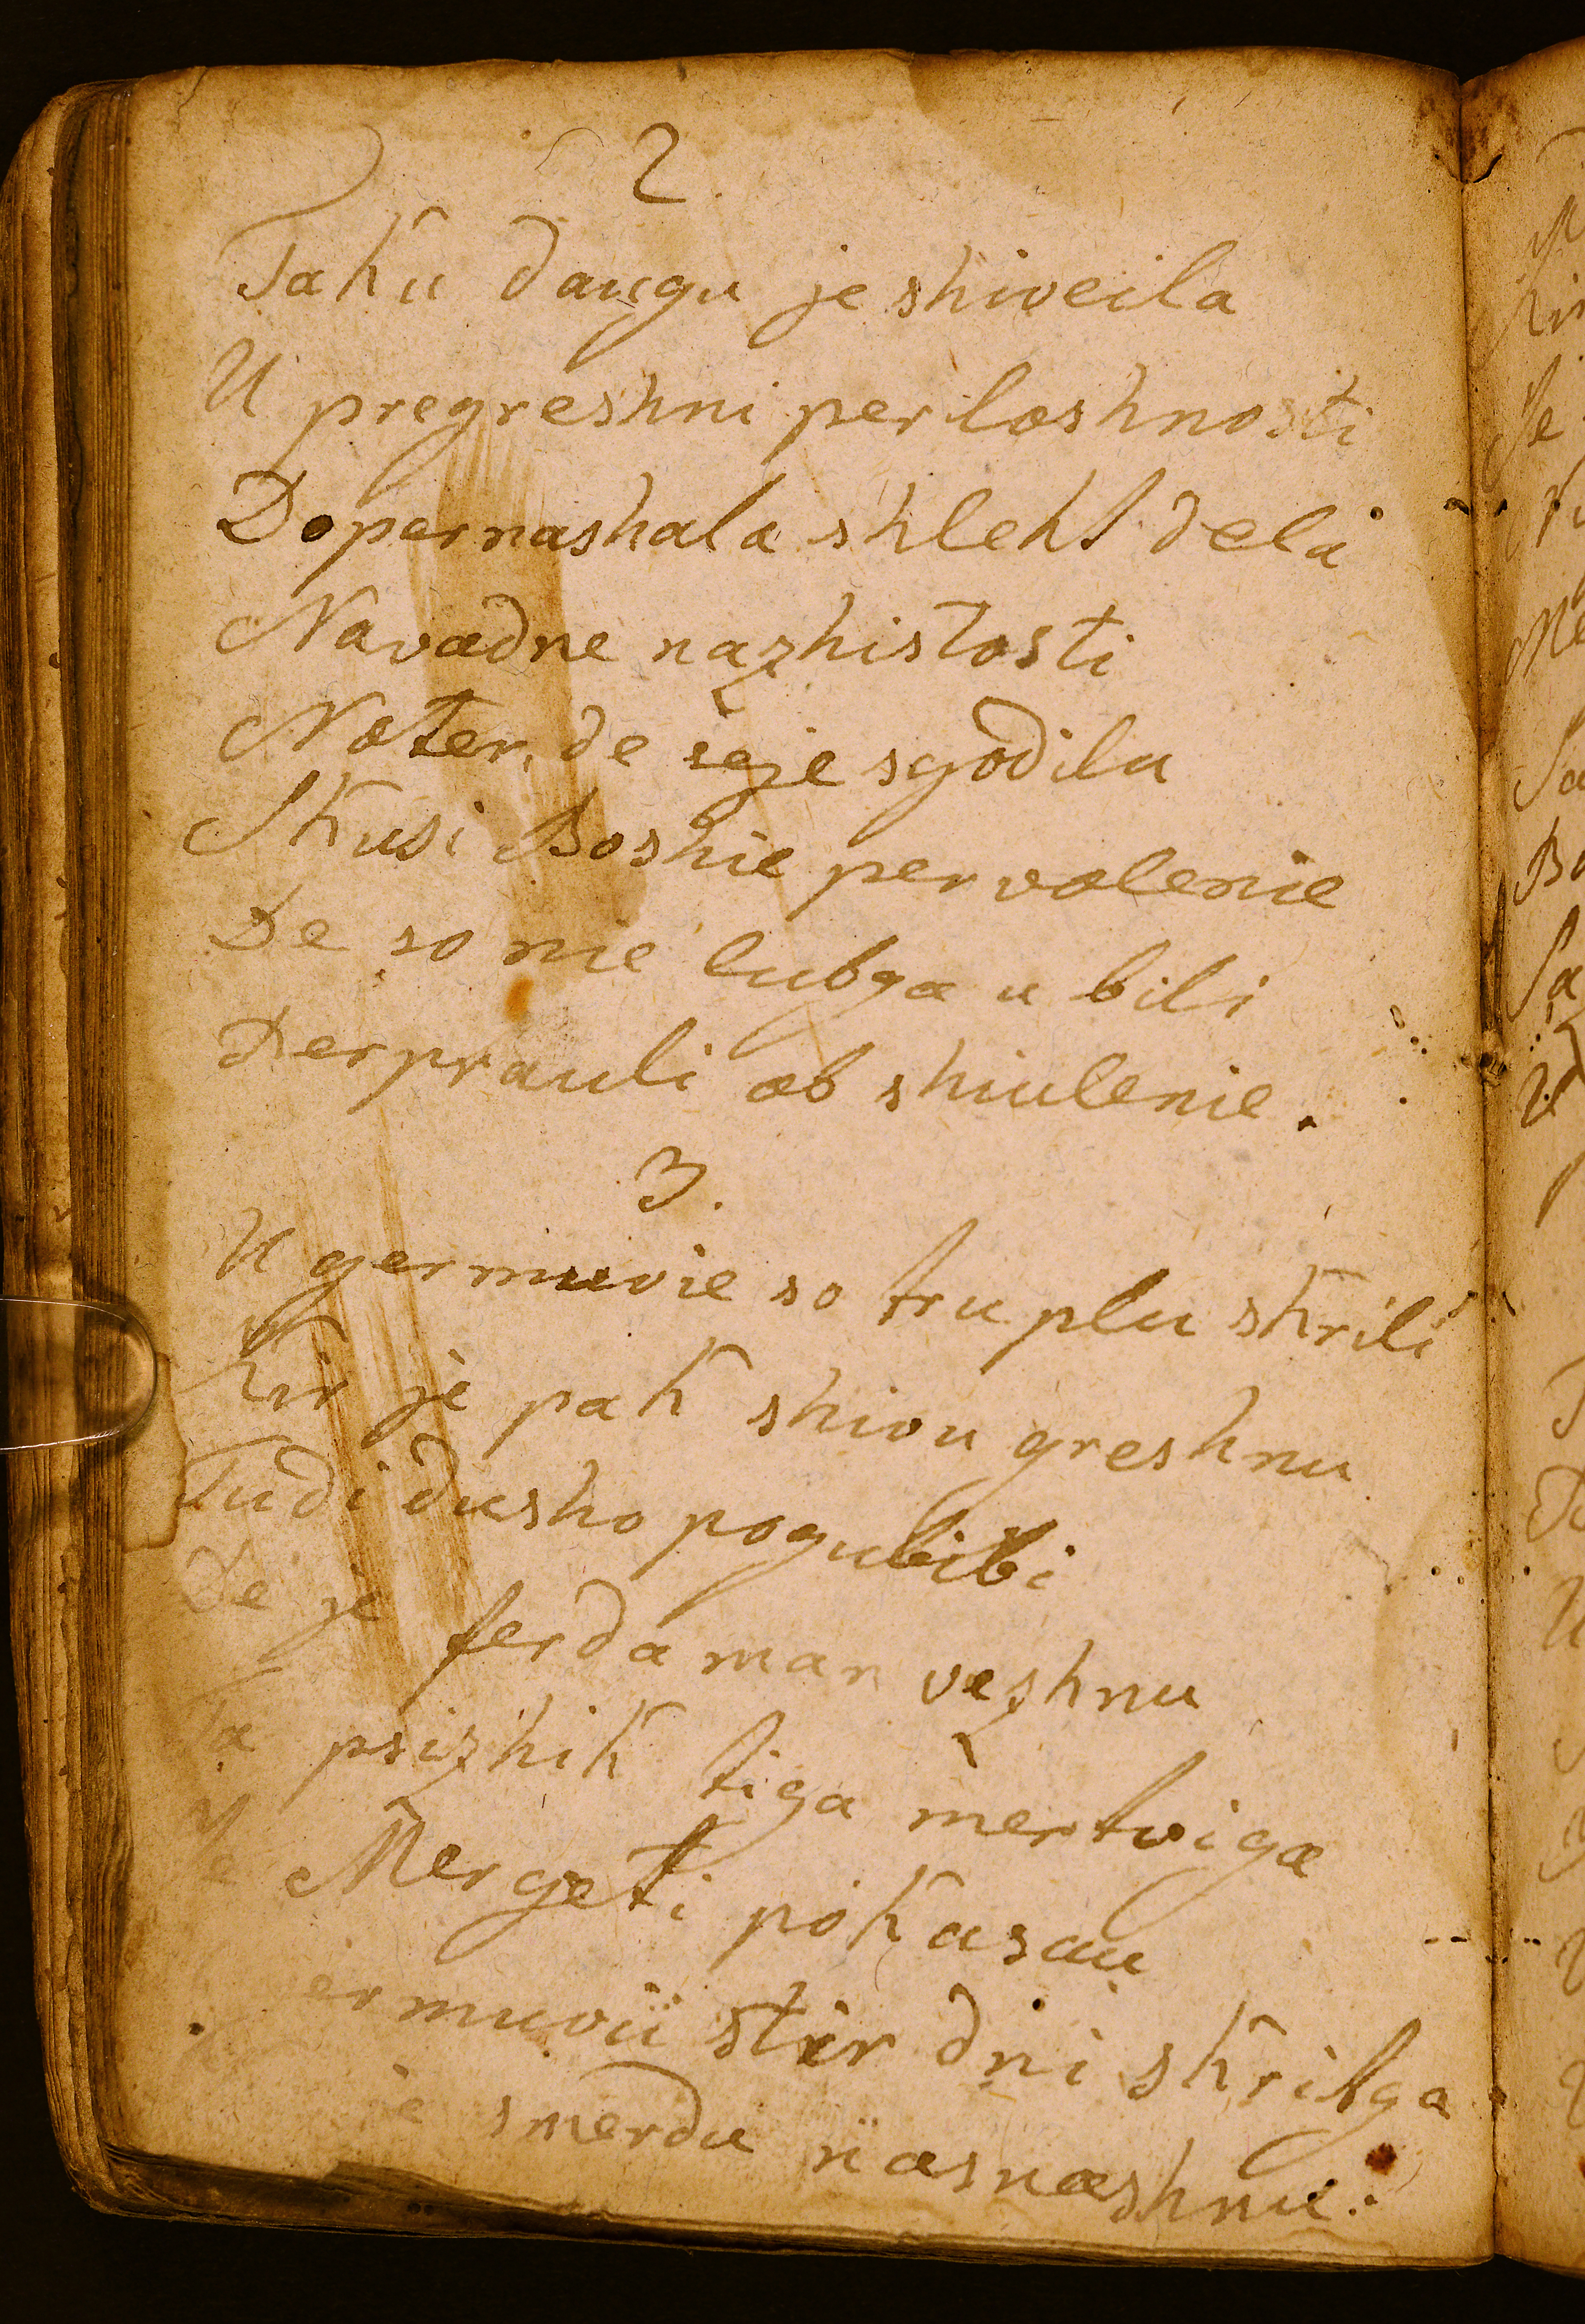 2.
Taku daugu je shiveila
U pregreshni perloshnosti
Dopernashala shleht dela
Navadne nazhistosti
Noter, de seje sgodilu
Skusi Boshie pervolenie
De so nie lubga u bili
Perprauli ob shiulenie.
3.
U germuvie so truplu skrili
Kir je pak shivu greshnu
Tudi dusho pogubibi
De je ferdaman vezhnu
Ta psizhik tiga mertviga
Je Mergeti pokasau
ermuvii stir dni skribga
je smerdu nasnashnu.